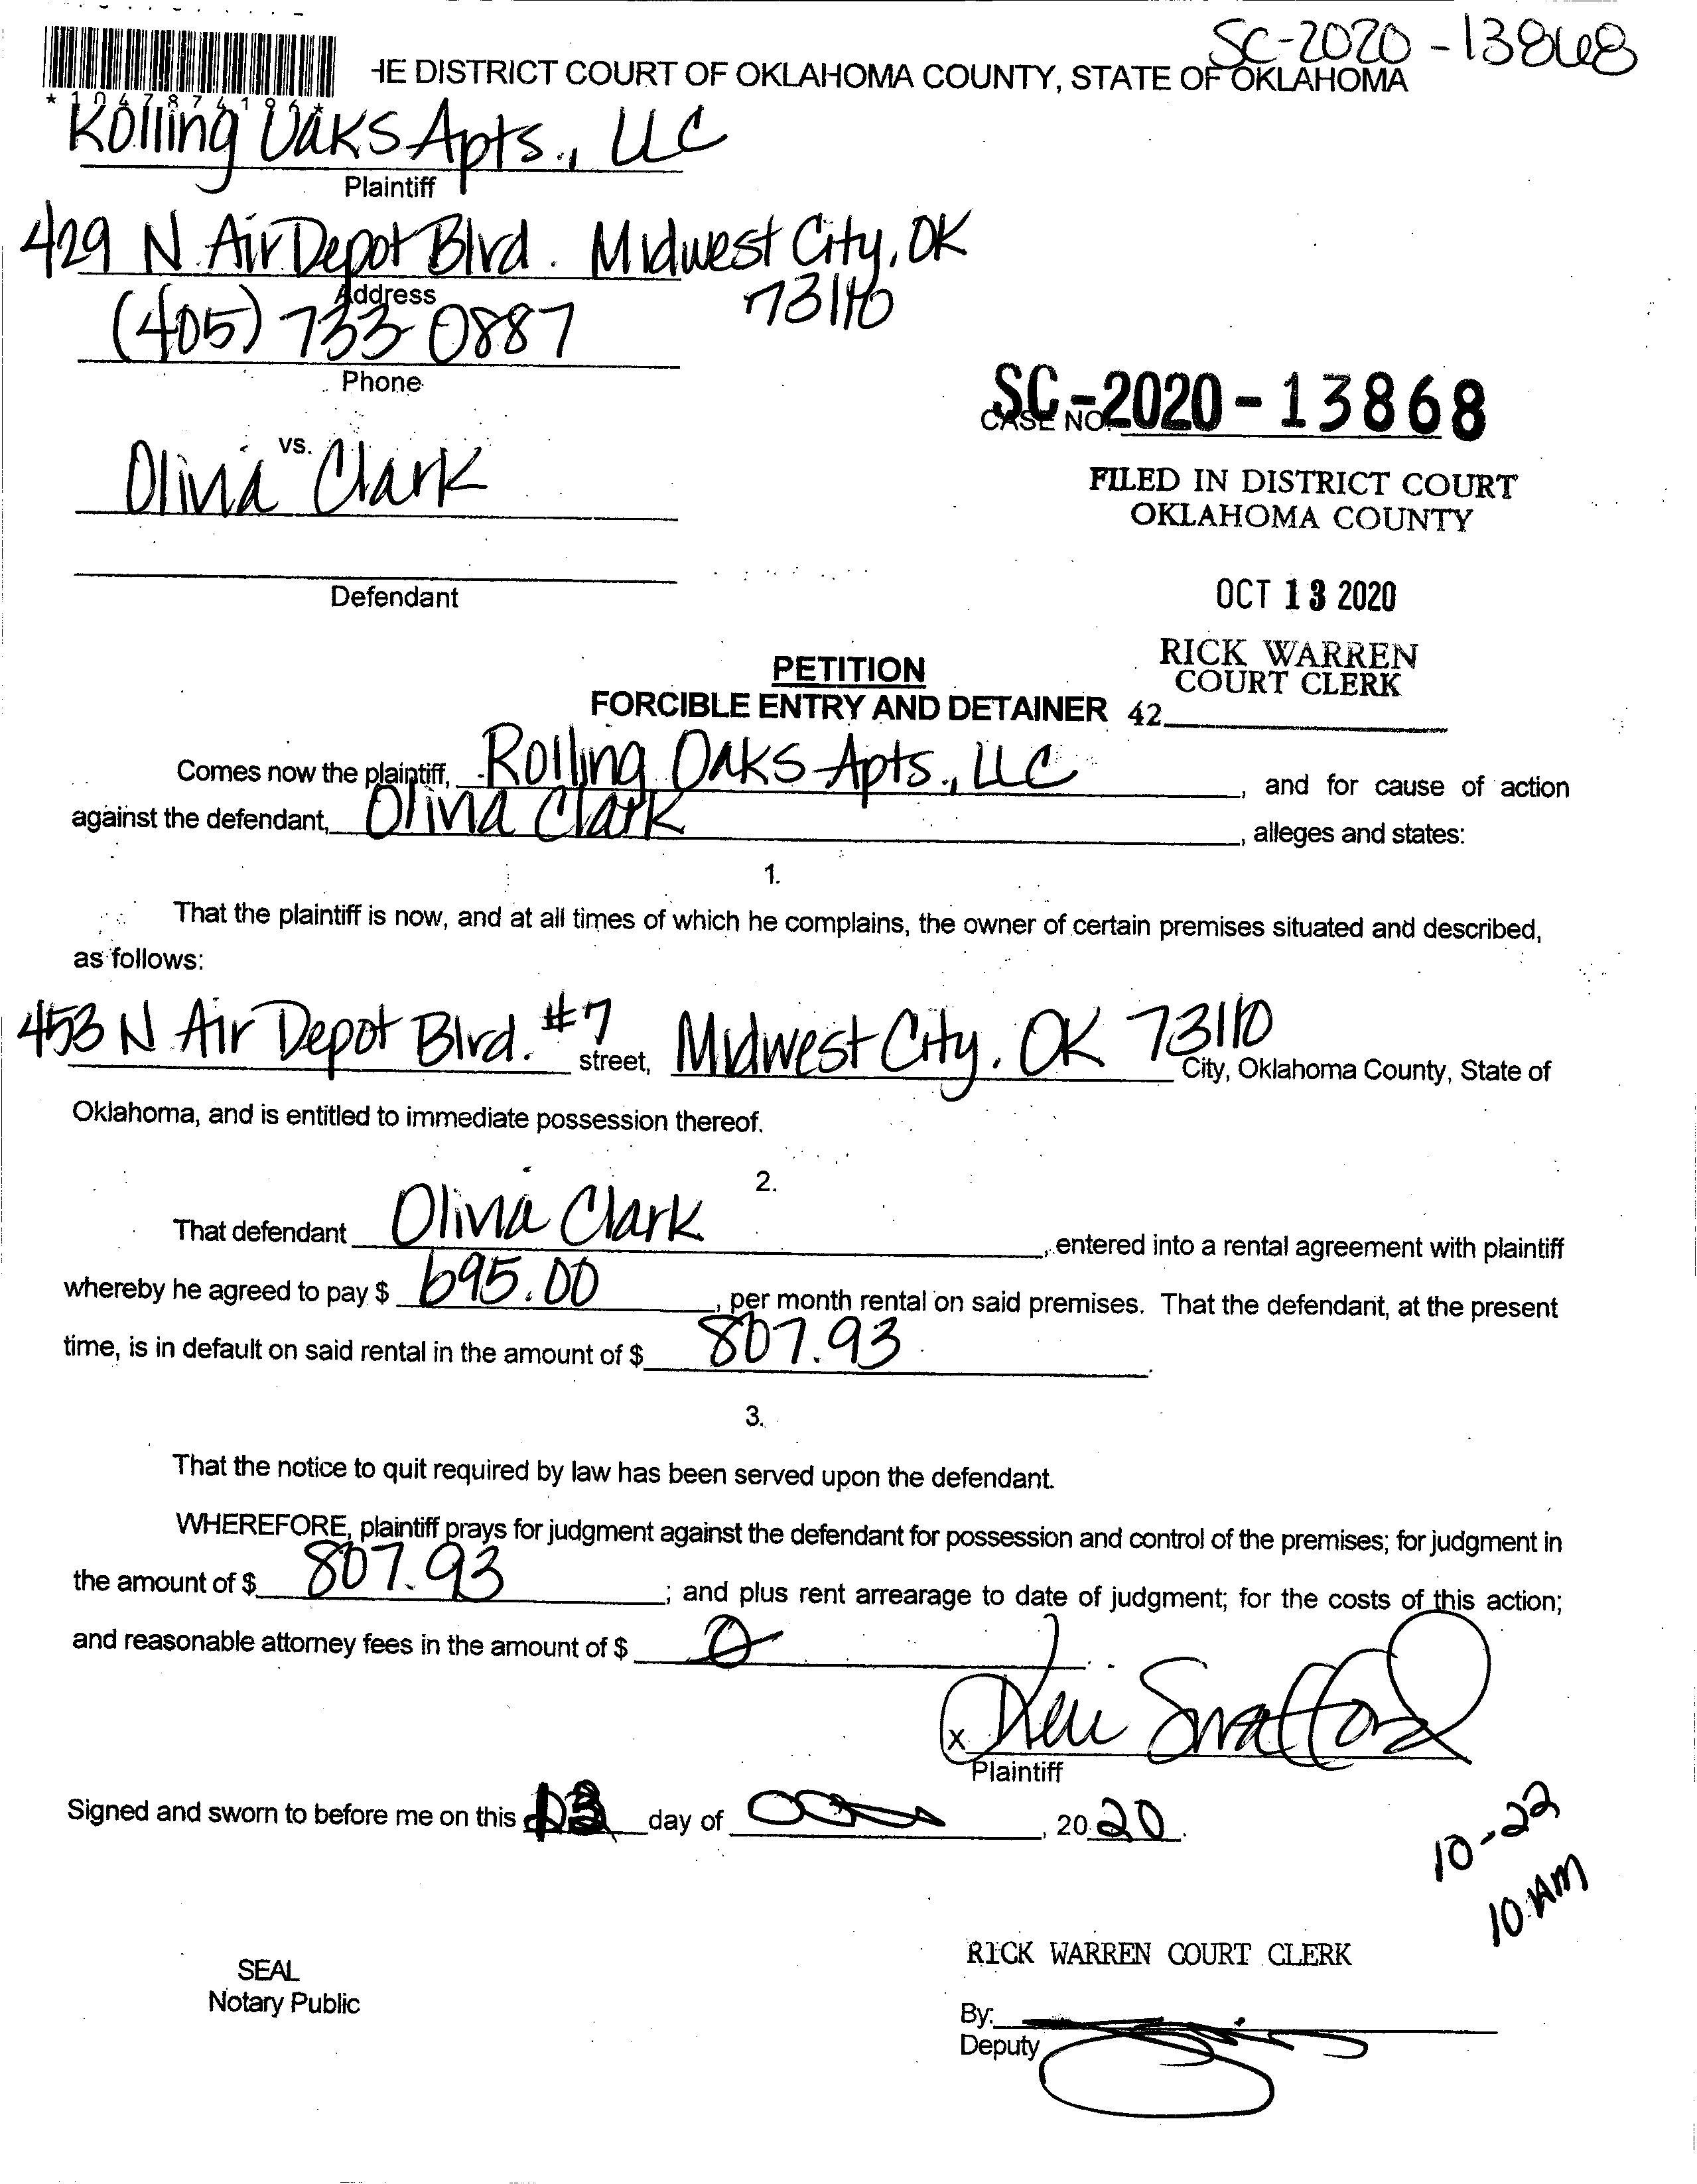 SC-2020-13868
HE DISTRICT COURT OF OKLAHOMA COUNTY, STATE OF OKLAHOMA
* 1 0 4 7 8 7 4 1 9 6 *
Rolling Oaks Apts., LLC
Plaintiff
429 N Air Depot Blvd. Midwest City, OK
73110
Address
(405) 733-0887
Phone
SC-2020-13868
CASE NO.
vs.
Olivia Clark
FILED IN DISTRICT COURT
OKLAHOMA COUNTY
Defendant
OCT 13 2020
RICK WARREN
COURT CLERK
PETITION
FORCIBLE ENTRY AND DETAINER
42
Comes now the plaintiff, Rolling Oaks Apts., LLC, and for cause of action
against the defendant, Olivia Clark, alleges and states:
1.
That the plaintiff is now, and at all times of which he complains, the owner of certain premises situated and described,
as follows:
453 N Air Depot Blvd. #7 street, Midwest City, OK 73110 City, Oklahoma County, State of
Oklahoma, and is entitled to immediate possession thereof.
2.
That defendant Olivia Clark, entered into a rental agreement with plaintiff
whereby he agreed to pay $ 695.00, per month rental on said premises. That the defendant, at the present
time, is in default on said rental in the amount of $ 807.93.
3.
That the notice to quit required by law has been served upon the defendant.
WHEREFORE, plaintiff prays for judgment against the defendant for possession and control of the premises; for judgment in
the amount of $ 807.93; and plus rent arrearage to date of judgment; for the costs of this action;
and reasonable attorney fees in the amount of $ 0.
x Swafford
Plaintiff
Signed and sworn to before me on this 13 day of , 2020.
10-22
10 AM
RICK WARREN COURT CLERK
SEAL
Notary Public
By:
Deputy